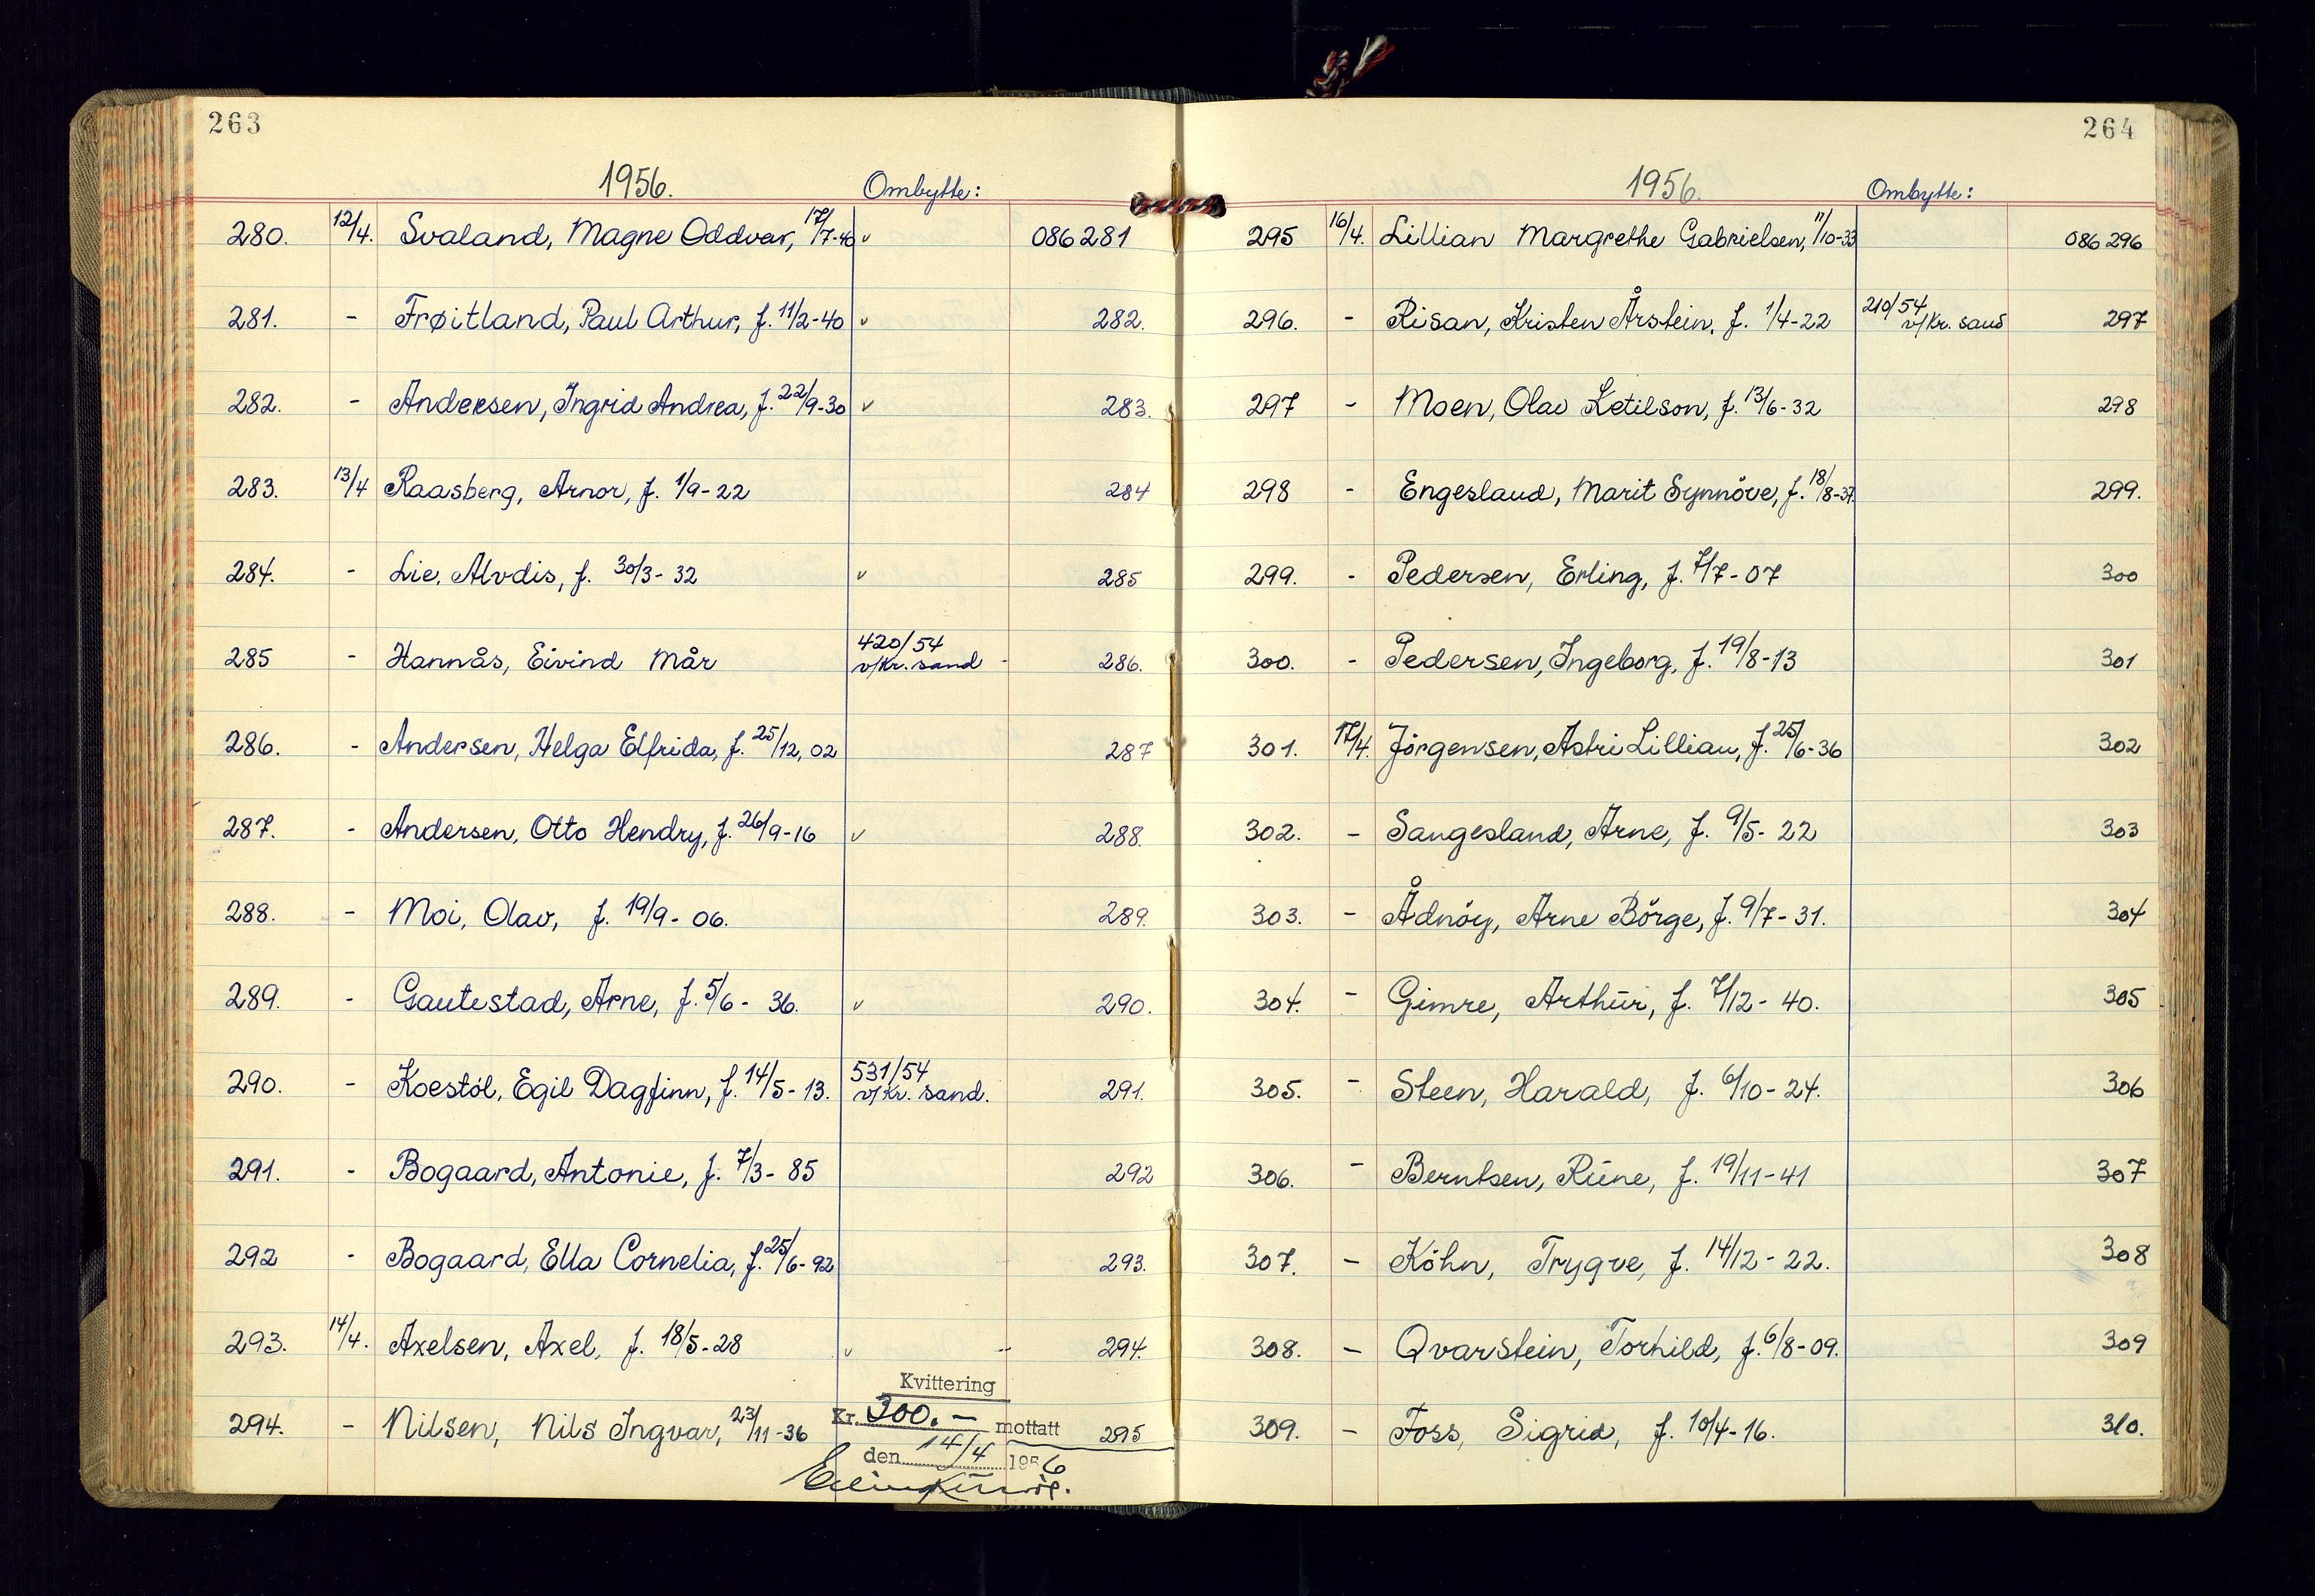 263
1956. Ombytte:
280. 12/4. Svaland, Magne Oddvar, 17/7-40 v 086281
281. - Frøitland, Paul Arthur, f. 11/2-40 v 282.
282. - Andersen, Ingrid Andrea, f. 22/9-30 v 283.
283. 13/4 Raasberg, Arnor, f. 1/9-22 284
284. - Lie, Alvdis, f. 30/3-32 v 285
285 - Hannås, Eivind Mår 420/54 v/Kr. sand - 286.
286. - Andersen, Helga Elfrida, f. 25/12, 02 287
287. - Andersen, Otto Hendry, f. 26/9-16 v 288.
288. - Moi, Olav, f. 19/9-06. 289.
289. - Gautestad, Arne, f. 5/6-36. v 290.
290. - Koestöl, Egil Dagfinn, f. 14/5-13. 531/54 v/Kr. sand. 291.
291. - Bogaard, Antonie, f. 7/3-85 292
292 - Bogaard, Ella Cornelia, f. 25/6-92 293.
293. 14/4. Axelsen, Axel, f. 18/5-28 v - 294.
294. - Nilsen, Nils Ingvar, 23/11-36 295
Kvittering
Kr. 300.- mottatt
den 14/4 1956
264
1956. Ombytte:
295 16/4. Lillian Margrethe Gabrielsen, 11/10-33 086296
296. - Risan, Kristen Årstein, f. 1/4-22 210/54 v/Kr. sand 297
297 - Moen, Olav Ketilson, f. 13/6-32 298
298 - Engesland, Marit Synnöve, f. 18/8-37. 299.
299. - Pedersen, Erling, f. 7/7-07 300
300. - Pedersen, Ingeborg, f. 19/8-13 301
301. 17/4. Jörgensen, Astri Lillian, f. 25/6-36 302
302. - Sangesland, Arne, f. 9/5-22 303
303. - Ådnöy, Arne Börge, f. 9/7-31. 304
304. - Gimre, Arthur, f. 7/12-40. 305
305. - Steen, Harald, f. 6/10-24. 306
306. - Berntsen, Rune, f. 19/11-41 307
307. - Köhn, Trygve, f. 14/12-22. 308
308. - Qvarstein, Torhild, f. 6/8-09. 309
309. - Foss, Sigrid, f. 10/4-16. 310.